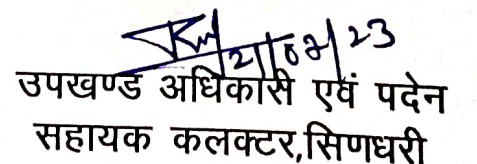 21/07/23
उपखण्ड अधिकारी एवं पदेन
सहायक कलक्टर,सिणधरी